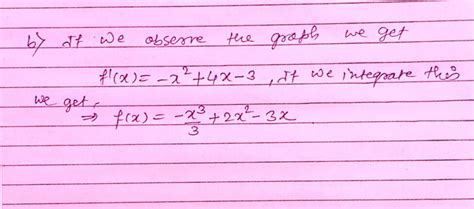 b) If we observe the graph we get
f'(x) = -x² + 4x - 3 , If we integrate this
we get,
⇒ f(x) = -x³/3 + 2x² - 3x